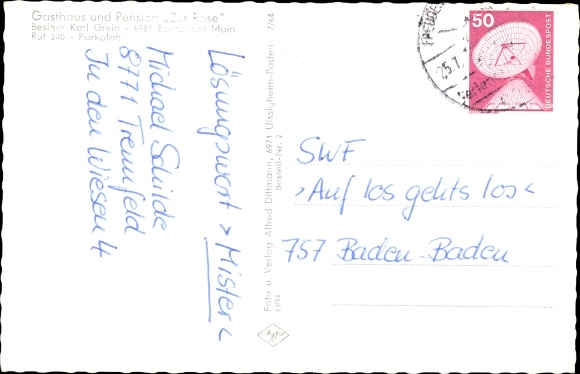 Gasthaus und Pension „Zur Rose"
Besitzer Karl Grein - 6981 am Main
Ruf 240 - Parkplatz
Lösungswort > Mister <
Michael Schilde
8771 Trennfeld
In den Wiesen 4
7/64
Foto u. Verlag Alfred Dittmann, 6971 Uissigheim-Baden
Bestell-Nr. 2
50
DEUTSCHE BUNDESPOST
25.7.
SWF
>Auf los gehts los<
757 Baden-Baden